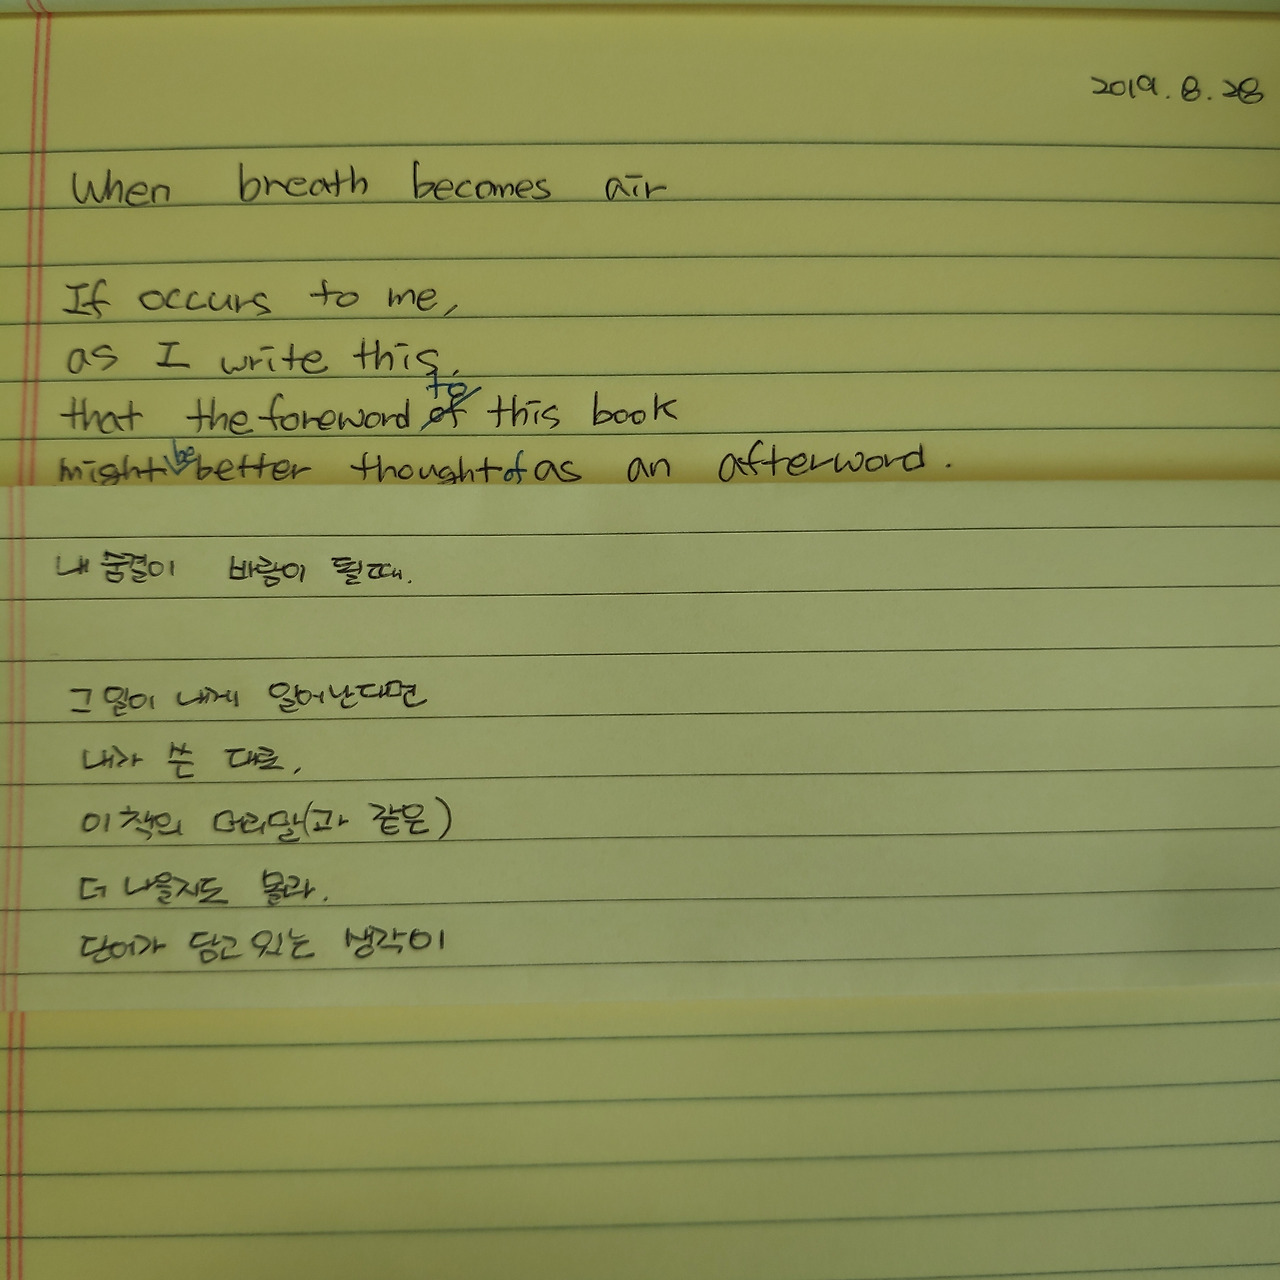 2019. 8. 28
When breath becomes air
If occurs to me,
as I write this,
that the foreword to this book
might be better thought of as an afterword.
내 숨결이 바람이 될때.
그 일이 내게 일어난다면
내가 쓴 대로,
이 책의 머리말(과 같은)
더 나을지도 몰라.
단어가 담고 있는 생각이